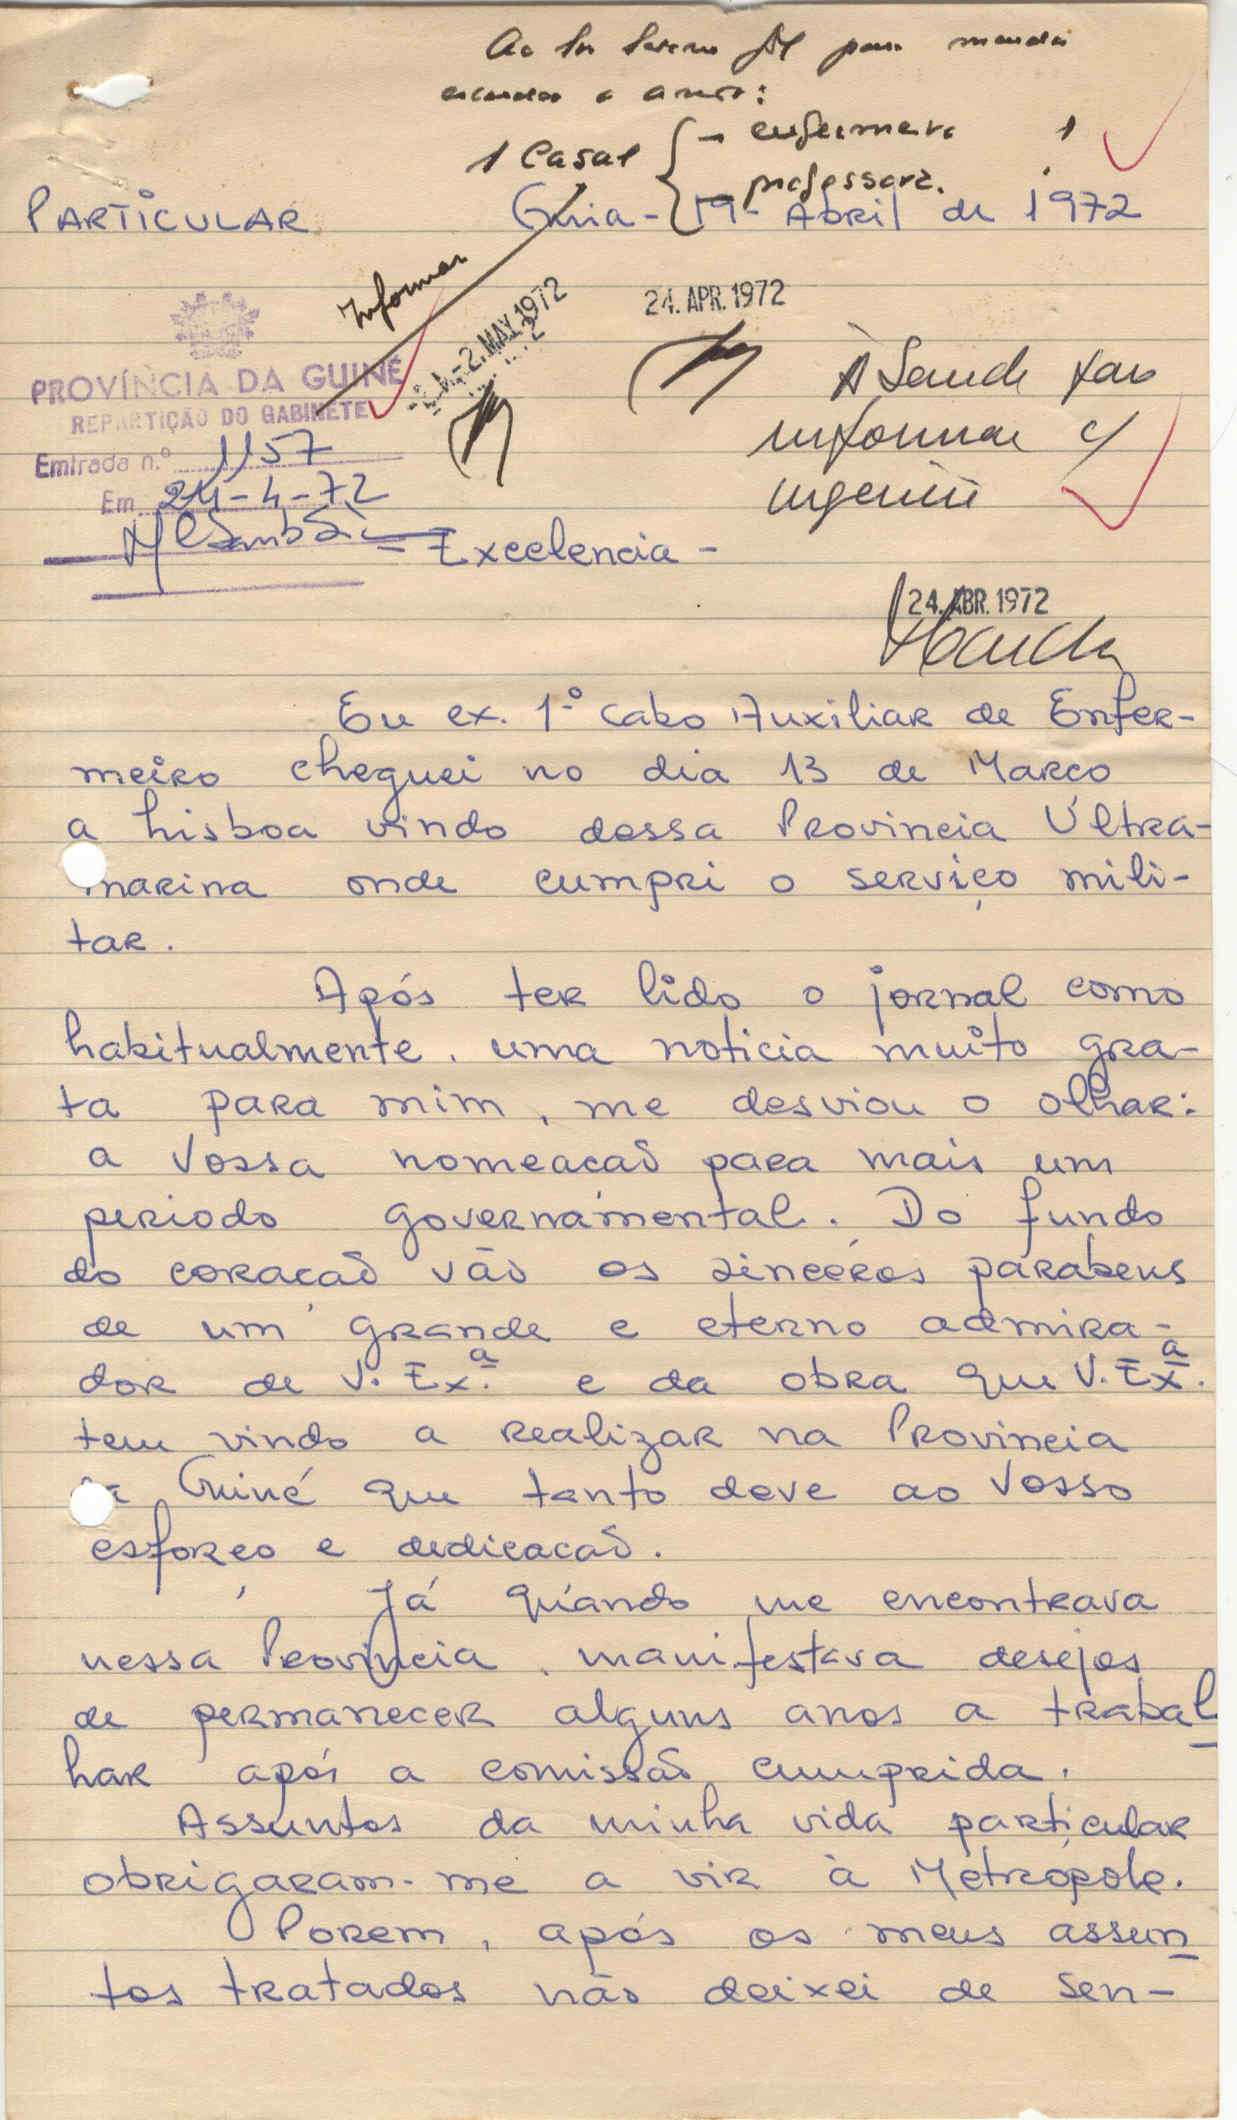 para mandar
1 Casal { - enfermeiro 1
- professora.
PARTICULAR Guia - 19 - Abril de 1972
Informar
24. APR. 1972
-2. MAY. 1972
PROVÍNCIA DA GUINÉ
REPARTIÇÃO DO GABINETE
Entrada n.º 1157
Em 24-4-72
À Saude para
informar c/
urgencia
= Excelencia -
24. ABR. 1972
Eu ex. 1º cabo Auxiliar de Enfer-
meiro cheguei no dia 13 de Março
a Lisboa vindo dessa Provincia Ultra-
marina onde cumpri o serviço mili-
tar.
Após ter lido o jornal como
habitualmente, uma noticia muito gra-
ta para mim, me desviou o olhar:
a Vossa nomeação para mais um
periodo governamental. Do fundo
do coração vão os sinceros parabens
de um grande e eterno admira-
dor de V. Ex.ª e da obra que V. Ex.ª
tem vindo a realizar na Provincia
da Guiné que tanto deve ao Vosso
esforço e dedicação.
Já quando me encontrava
nessa Provincia, manifestava desejos
de permanecer alguns anos a trabal
har após a comissão cumprida.
Assuntos da minha vida particular
obrigaram-me a vir à Metropole.
Porem, após os meus assun
tos tratados não deixei de sen-